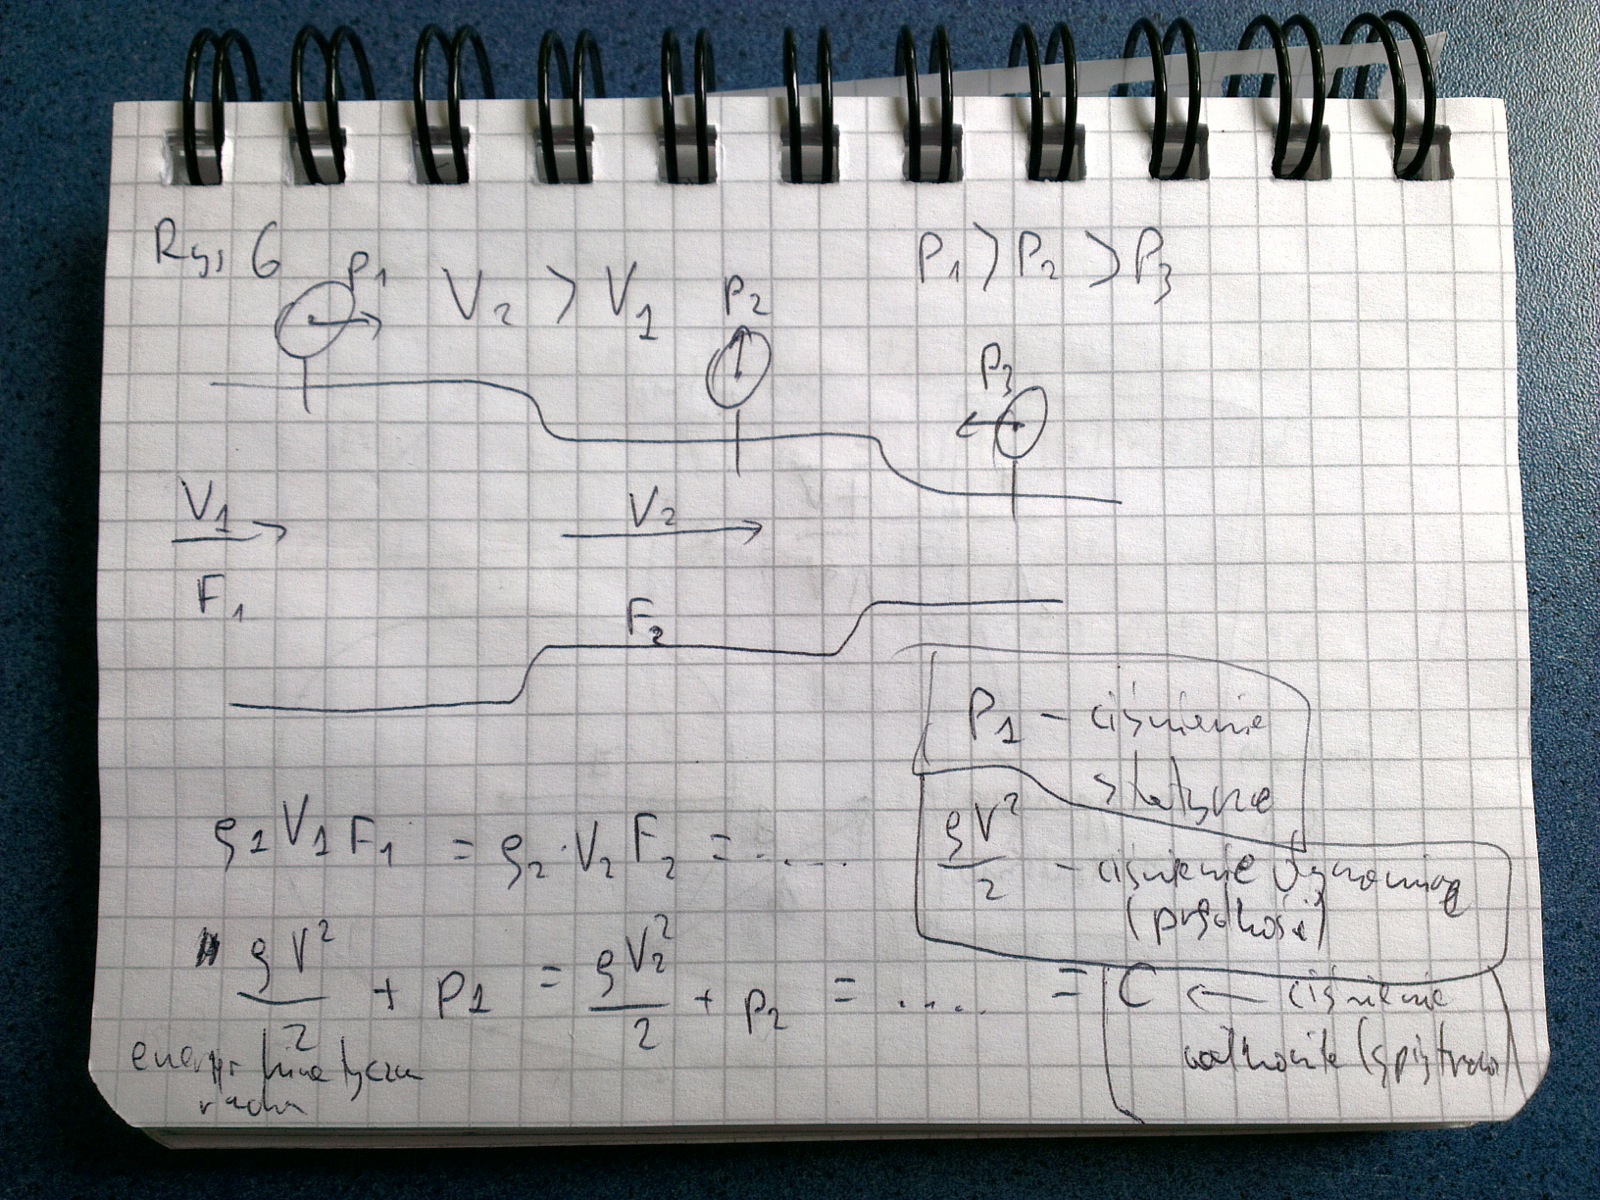 Rys 6
P1
V2 > V1
P2
P1 > P2 > P3
P3
V1
V2
F1
F2
P1 - ciśnienie
statyczne
ρV²/2 - ciśnienie dynamiczne
(prędkości)
ρ1 V1 F1 = ρ2 · V2 F2 = ....
ρV²/2 + P1 = ρV2²/2 + P2 = .... = C ← ciśnienie
całkowite (spiętrzenia)
energia kinetyczna
ruchu